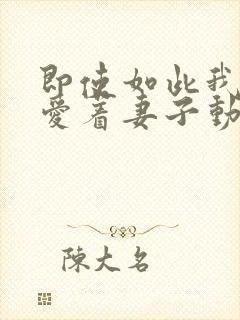 即使如此我
愛着妻子動
陳大名